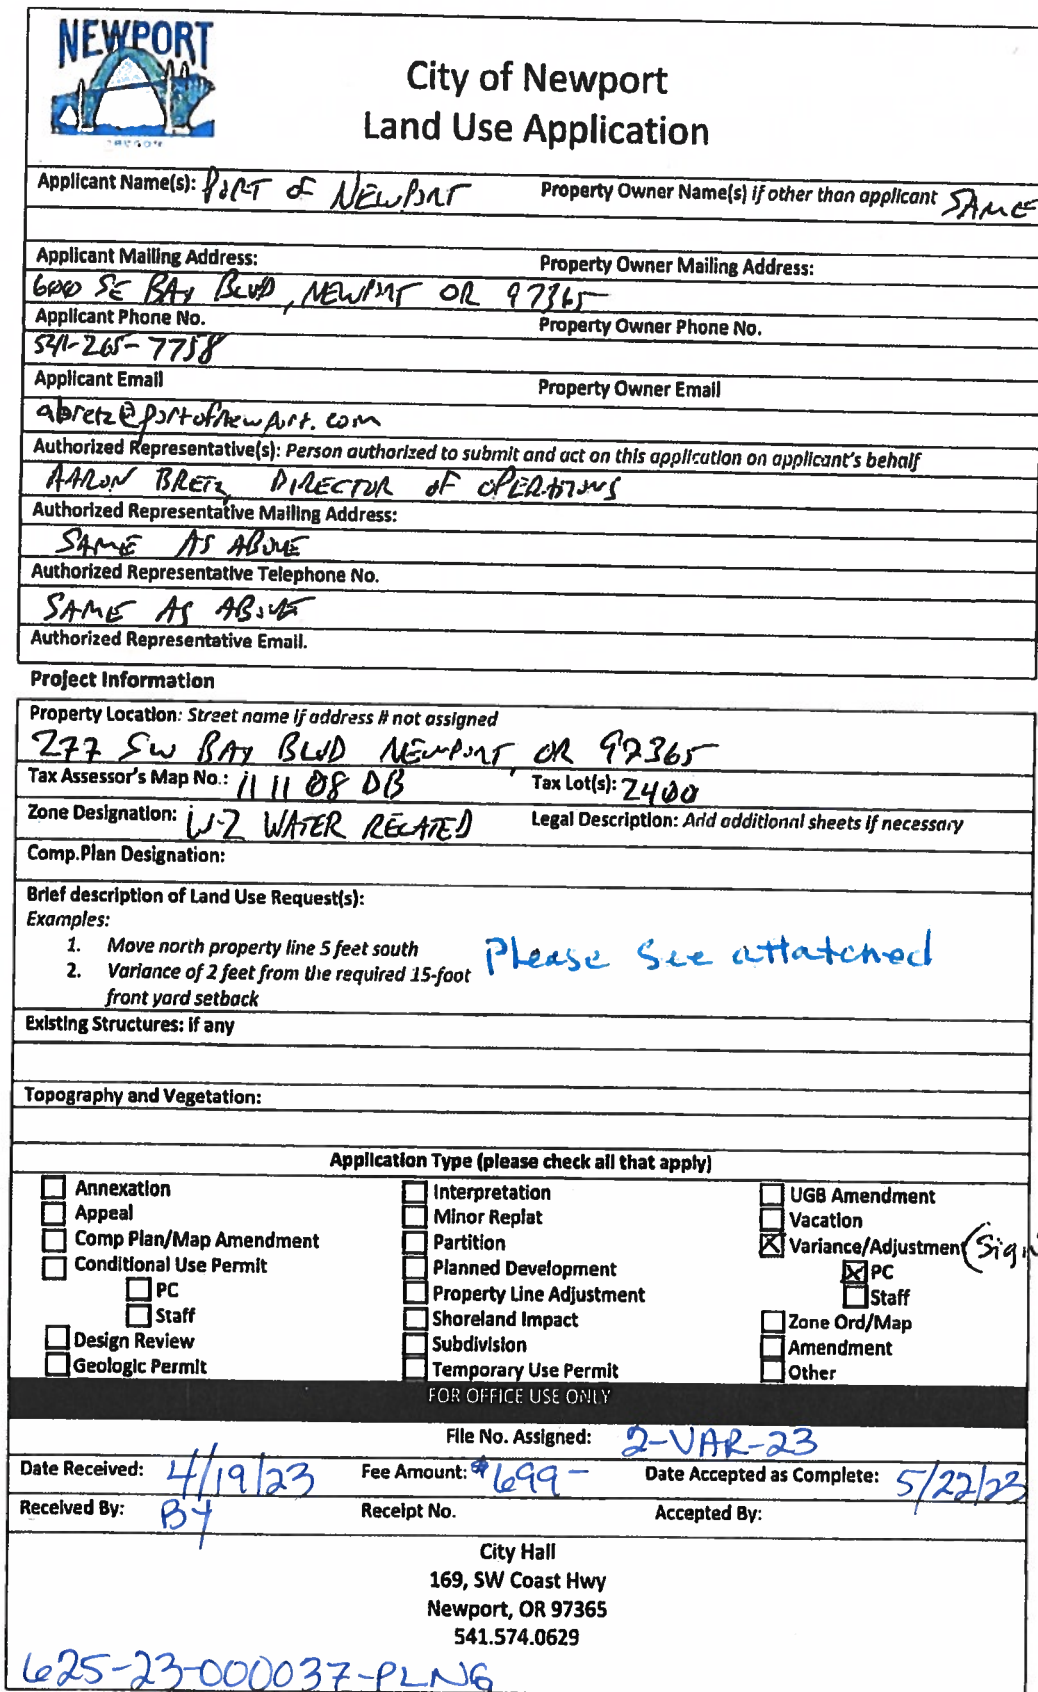 NEWPORT
OREGON
City of Newport
Land Use Application
Applicant Name(s): PORT OF NEWPORT Property Owner Name(s) if other than applicant SAME
Applicant Mailing Address: Property Owner Mailing Address:
600 SE BAY BLVD, NEWPORT OR 97365
Applicant Phone No. Property Owner Phone No.
541-265-7758
Applicant Email Property Owner Email
abretz@portofnewport.com
Authorized Representative(s): Person authorized to submit and act on this application on applicant's behalf
AARON BRETZ, DIRECTOR OF OPERATIONS
Authorized Representative Mailing Address:
SAME AS ABOVE
Authorized Representative Telephone No.
SAME AS ABOVE
Authorized Representative Email.
Project Information
Property Location: Street name if address # not assigned
277 SW BAY BLVD NEWPORT, OR 97365
Tax Assessor's Map No.: 11 11 08 DB Tax Lot(s): 2400
Zone Designation: W-2 WATER RELATED Legal Description: Add additional sheets if necessary
Comp.Plan Designation:
Brief description of Land Use Request(s):
Examples:
1. Move north property line 5 feet south
2. Variance of 2 feet from the required 15-foot
front yard setback
Please See attatched
Existing Structures: if any
Topography and Vegetation:
Application Type (please check all that apply)
Annexation Interpretation UGB Amendment
Appeal Minor Replat Vacation
Comp Plan/Map Amendment Partition Variance/Adjustment (Sign
Conditional Use Permit Planned Development PC
PC Property Line Adjustment Staff
Staff Shoreland Impact Zone Ord/Map
Design Review Subdivision Amendment
Geologic Permit Temporary Use Permit Other
FOR OFFICE USE ONLY
File No. Assigned: 2-VAR-23
Date Received: 4/19/23 Fee Amount: $699- Date Accepted as Complete: 5/22/23
Received By: BY Receipt No. Accepted By:
City Hall
169, SW Coast Hwy
Newport, OR 97365
541.574.0629
625-23-000037-PLNG